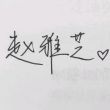 赵雅芝♡